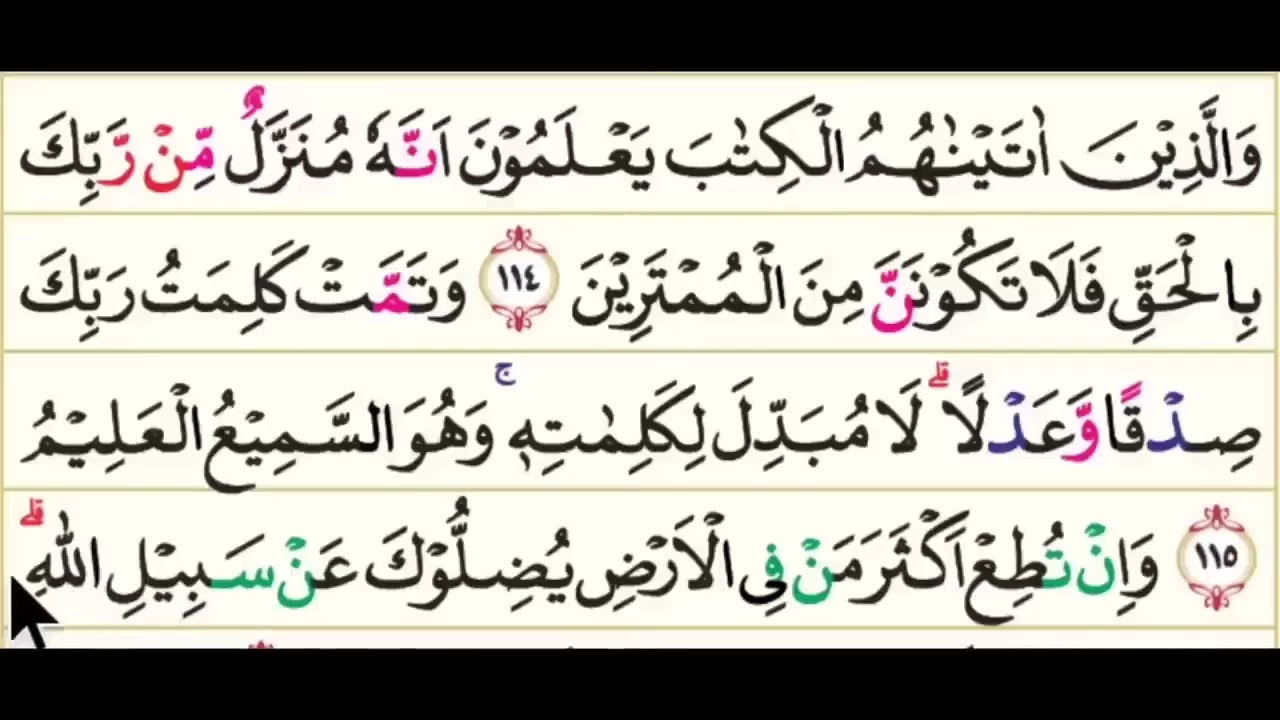 وَالَّذِيْنَ اٰتَيْنٰهُمُ الْكِتٰبَ يَعْلَمُوْنَ اَنَّهٗ مُنَزَّلٌ مِّنْ رَّبِّكَ
بِالْحَقِّ فَلَا تَكُوْنَنَّ مِنَ الْمُمْتَرِيْنَ ١١٤ وَتَمَّتْ كَلِمَتُ رَبِّكَ
صِدْقًا وَّعَدْلًا ۗ لَا مُبَدِّلَ لِكَلِمٰتِهٖ ۚ وَهُوَ السَّمِيْعُ الْعَلِيْمُ
١١٥ وَاِنْ تُطِعْ اَكْثَرَ مَنْ فِى الْاَرْضِ يُضِلُّوْكَ عَنْ سَبِيْلِ اللّٰهِ ۗ